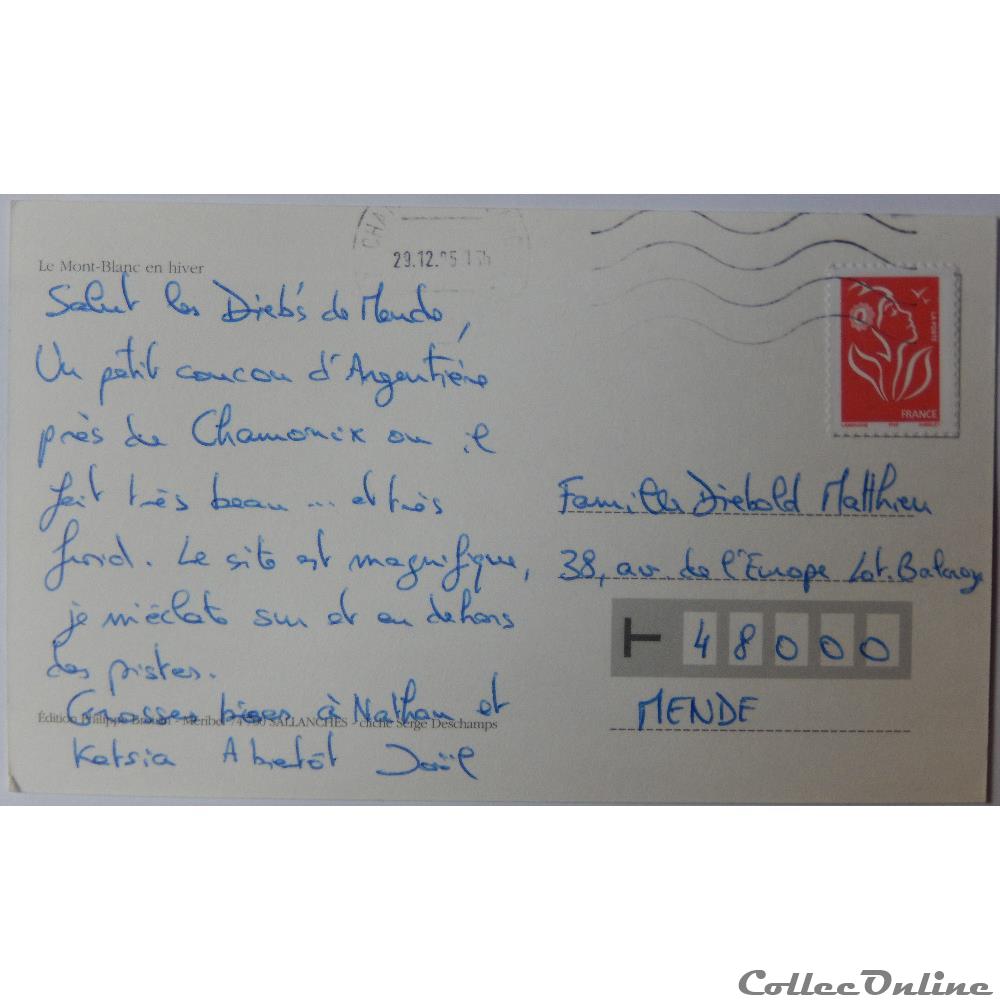 Le Mont-Blanc en hiver
29.12.05
Salut les Dieb's de Mende,
Un petit coucou d'Argentière
près de Chamonix ou il
fait très beau ... et très
froid. Le site est magnifique,
je m'éclate sur et en dehors
des pistes.
Grosses bises à Nathan et
Édition Philippe - Méribel - SALLANCHES - cliché Serge Deschamps
Katsia A bientôt Joël
LA POSTE
FRANCE
Famille Diebold Matthieu
38, av. de l'Europe Lot.
48000
MENDE
CollecOnline